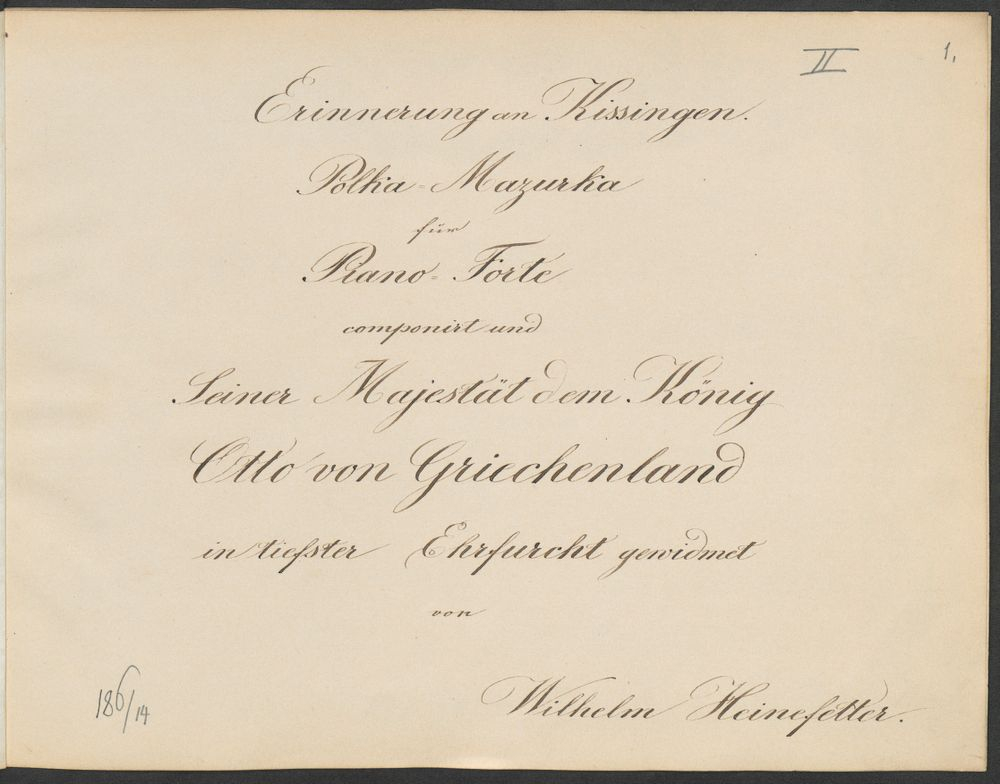 II
1.
Erinnerung an Kissingen.
Polka-Mazurka
für
Piano-Forte
componirt und
Seiner Majestät dem König
Otto von Griechenland
in tiefster Ehrfurcht gewidmet
von
Wilhelm Heinefetter.
186/14